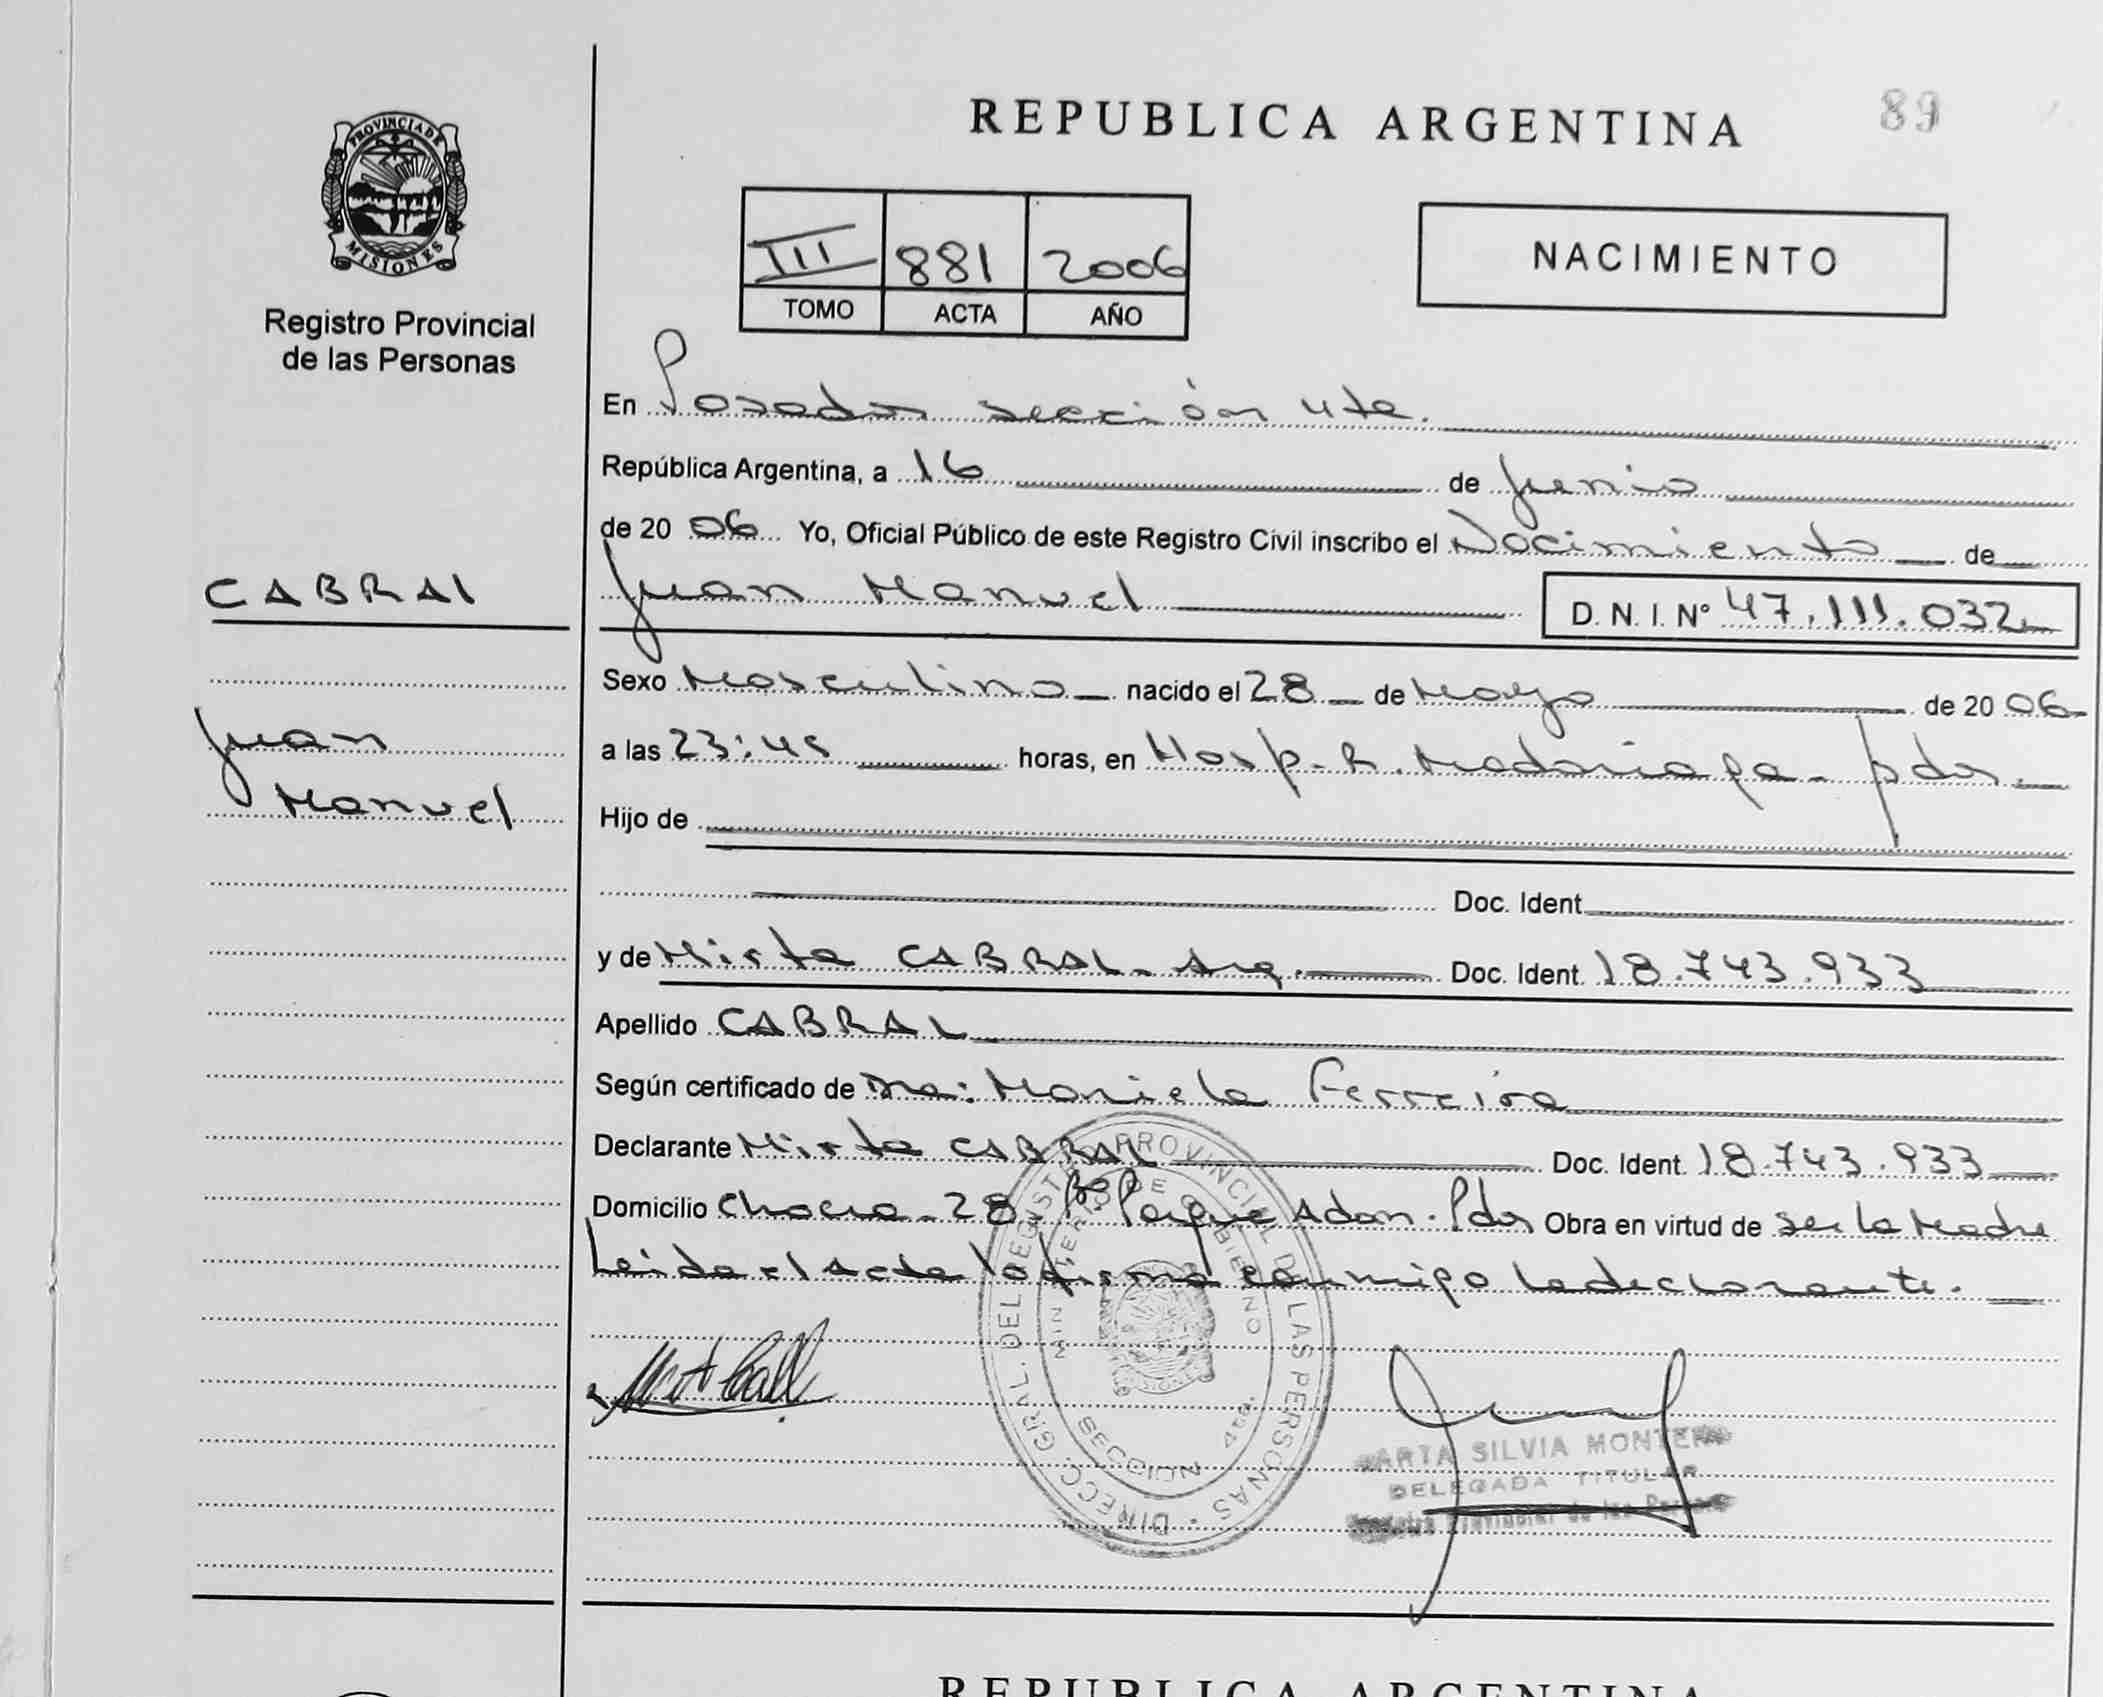 REPUBLICA ARGENTINA
89
PROVINCIA DE
MISIONES
Registro Provincial
de las Personas
III 881 2006
TOMO ACTA AÑO
NACIMIENTO
En Posadas sección 4ta.
República Argentina, a 16 de Junio
de 2006 Yo, Oficial Público de este Registro Civil inscribo el Nacimiento de
CABRAL
Juan Manuel D. N. I. Nº 47.111.032
Sexo Masculino nacido el 28 de Mayo de 2006
Juan
Manuel
a las 23:45 horas, en Hosp. R. Madariaga - pdas.
Hijo de
Doc. Ident.
y de Mirta CABRAL - Arg. Doc. Ident. 18.743.933
Apellido CABRAL
Según certificado de Dra: Mariela Ferreira
Declarante Mirta CABRAL Doc. Ident. 18.743.933
Domicilio Chacra - 28. Bº Parque Adam. Pdas Obra en virtud de ser la Madre
Leida el Acta la firma conmigo la declarante.
DIRECC. GRAL. DEL REGISTRO PROVINCIAL DE LAS PERSONAS
MINISTERIO DE GOBIERNO
SECCION 4ta.
MISIONES
ARTA SILVIA MONTERO
DELEGADA TITULAR
Registro Provincial de las Personas
REPUBLICA ARGENTINA